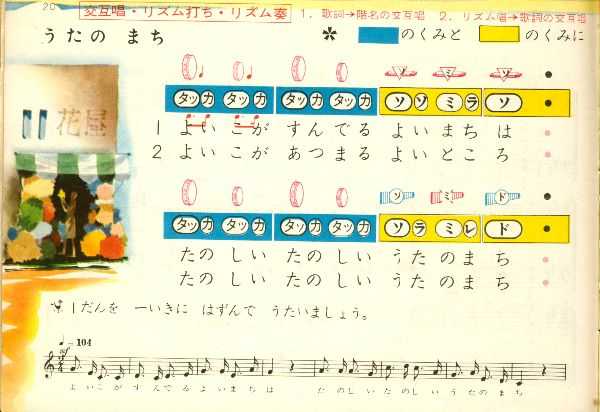 20 交互唱・リズム打ち・リズム奏 1. 歌詞→階名の交互唱 2. リズム唱→歌詞の交互唱
うたの まち
のくみと のくみに
花屋
ソ ミ
タッカ タッカ タッカ タッカ ソソ ミラ ソ
1 よい こが すんでる よいまち は
2 よい こが あつまる よいところ
ソ ミ ド
タッカ タッカ タッカ タッカ ソラ ミレ ド
たの しい たの しい うた のま ち
たの しい たの しい うた のま ち
1だんを 一いきに はずんで うたいましょう。
♩=104
mf
よ い こ が す ん で る よ い ま ち は た の し い た の し い う た の ま ち